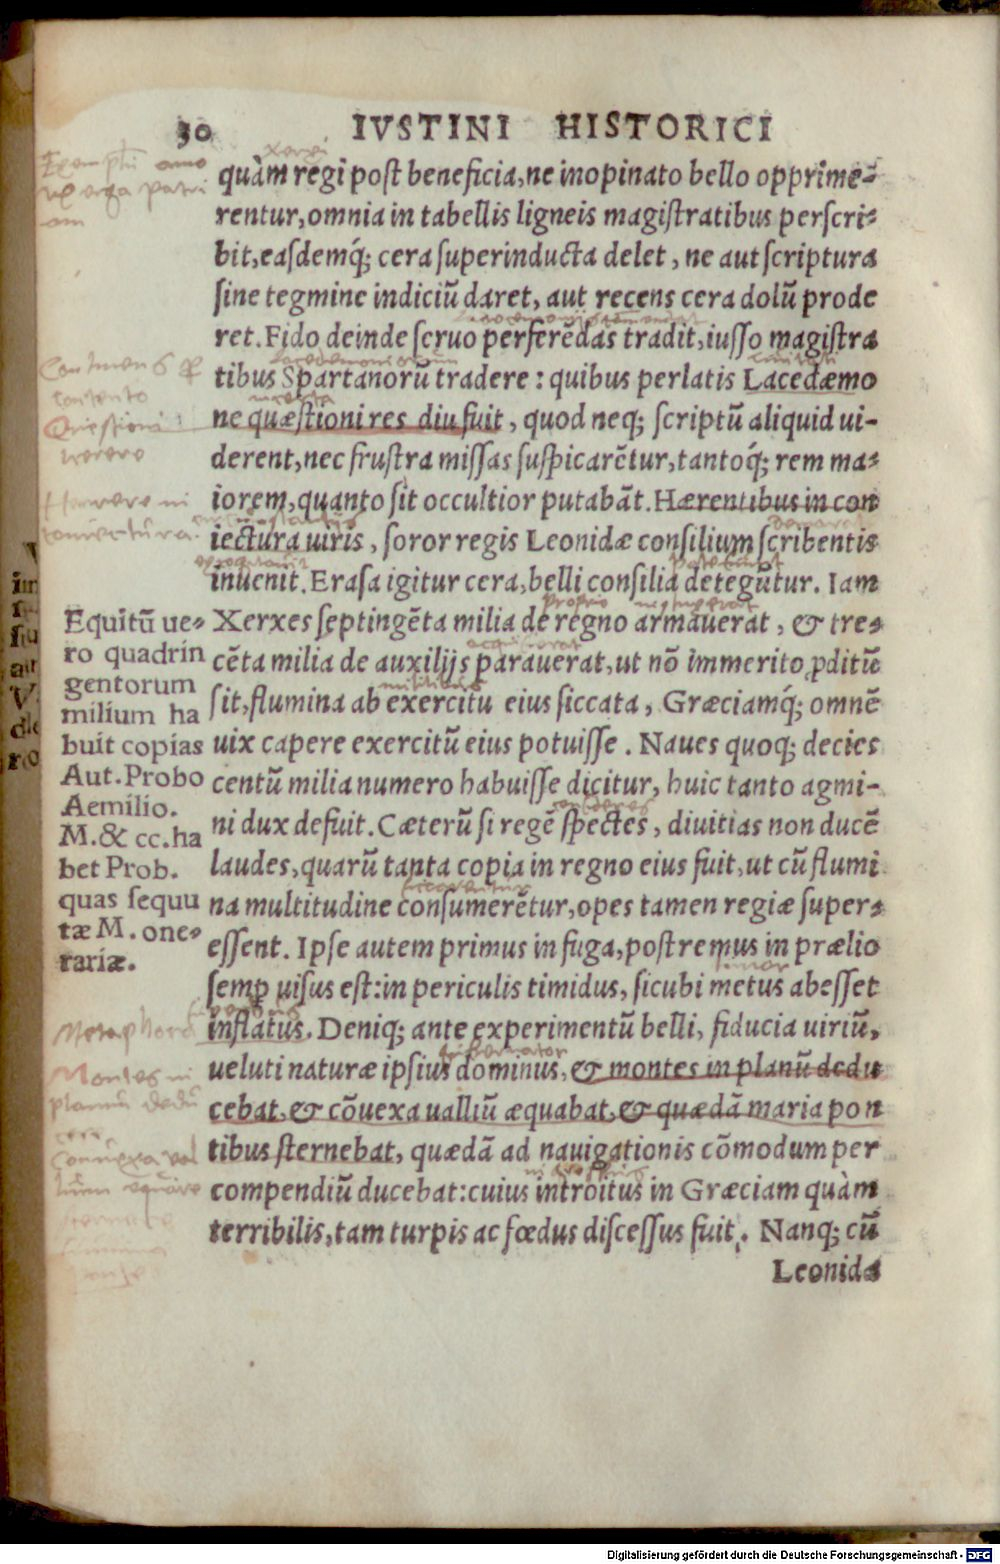 30 IVSTINI HISTORICI
quàm regi post beneficia, ne inopinato bello opprime-
rentur, omnia in tabellis ligneis magistratibus perscri-
bit, easdemq́; cera superinducta delet, ne aut scriptura
sine tegmine indiciũ daret, aut recens cera dolũ prode
ret. Fido deinde seruo perferẽdas tradit, iusso magistra
tibus Spartanorũ tradere: quibus perlatis Lacedæmo
ne quæstioni res diu fuit, quod neq; scriptũ aliquid ui-
derent, nec frustra missas suspicarẽtur, tantoq́; rem ma-
iorem, quanto sit occultior putabãt. Hærentibus in con
iectura uiris, soror regis Leonidæ consilium scribentis
inuenit. Erasa igitur cera, belli consilia detegũtur. Iam
Xerxes septingẽta milia de regno armauerat, & tre-
cẽta milia de auxilijs parauerat, ut nõ immerito ꝓditũ
sit, flumina ab exercitu eius siccata, Græciamq́; omnẽ
uix capere exercitũ eius potuisse. Naues quoq; decies
centũ milia numero habuisse dicitur, huic tanto agmi-
ni dux defuit. Cæterũ si regẽ spectes, diuitias non ducẽ
laudes, quarũ tanta copia in regno eius fuit, ut cũ flumi
na multitudine consumerẽtur, opes tamen regiæ super-
essent. Ipse autem primus in fuga, postremus in prælio
semꝑ uisus est: in periculis timidus, sicubi metus abesset
inflatus. Deniq; ante experimentũ belli, fiducia uiriũ,
ueluti naturæ ipsius dominus, & montes in planũ dedu
cebat, & cõuexa ualliũ æquabat, & quædã maria pon
tibus sternebat, quædã ad nauigationis cõmodum per
compendiũ ducebat: cuius introitus in Græciam quàm
terribilis, tam turpis ac fœdus discessus fuit. Nanq; cũ
Leonida
Equitũ ue-
ro quadrin
gentorum
milium ha
buit copias
Aut. Probo
Aemilio.
M. & cc. ha
bet Prob.
quas sequu
tæ M. one-
rariæ.
Quæstioni
Metaphora
Montes in
planum dedu
Digitalisierung gefördert durch die Deutsche Forschungsgemeinschaft - DFG